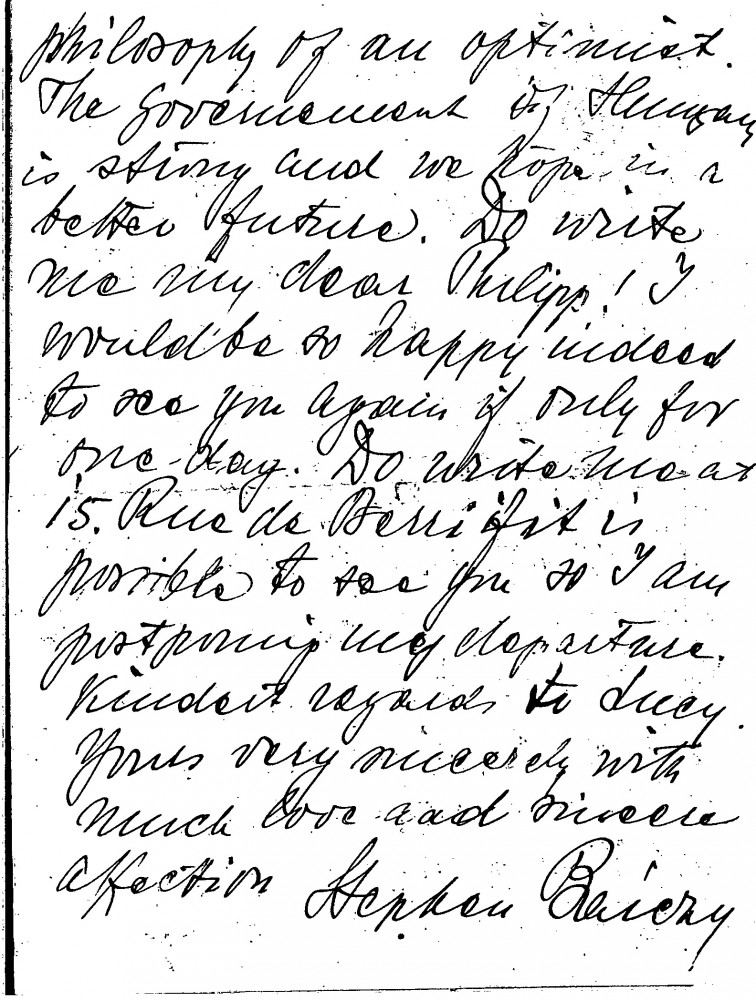 philosophy of an optimist.
The Governement of Hungary
is strong and we hope in a
better future. Do write
me my dear Philipp! I
would be so happy indeed
to see you again if only for
one day. Do write me at
15. Rue de Berri if it is
possible to see you so I am
postponing my departure.
Kindest regards to Lucy.
Yours very sincerely with
much love and sincere
affection Stephen